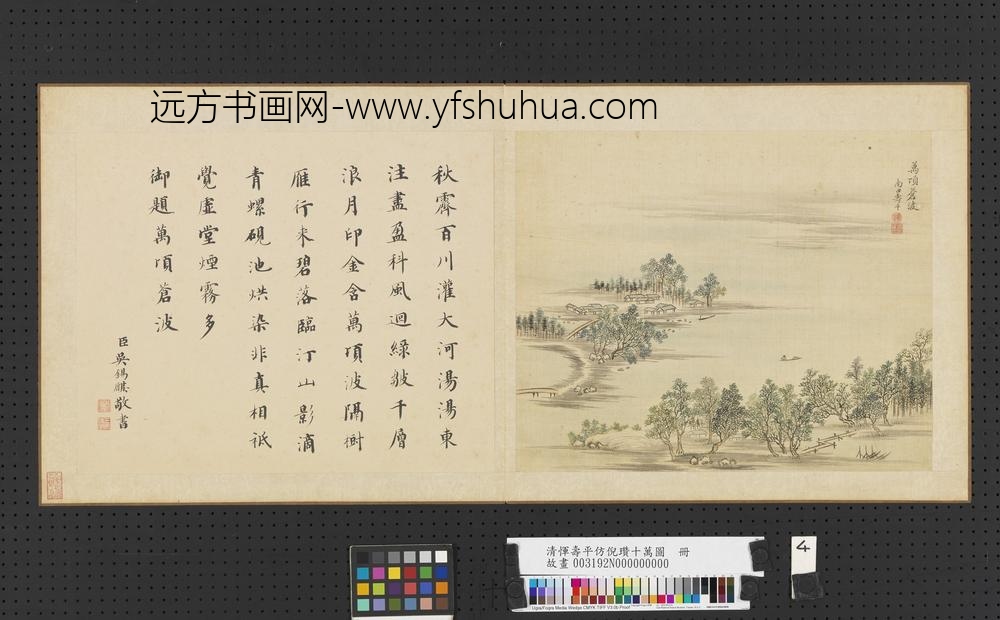 远方书画网-www.yfshuhua.com
萬頃蒼波
南田壽平
秋霽百川灌大河湯湯東
注盡盈科風迴綠皺千層
浪月印金含萬頃波隔樹
雁行来碧落臨汀山影滴
青螺硯池烘染非真相祇
覺虛堂煙霧多
御題萬頃蒼波
臣吳錫麒敬書
清惲壽平仿倪瓚十萬圖 冊
故畫 003192N000000000
4
Ugra/Fogra Media Wedge CMYK TIFF V3.0b Proof